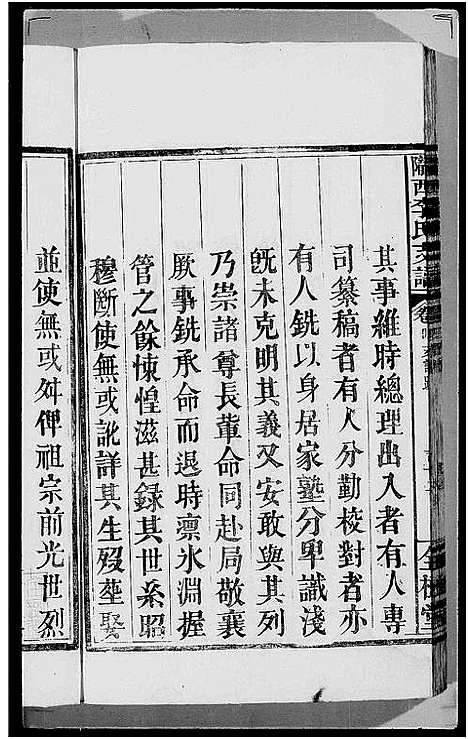 隴西李氏支譜
卷
其事維時總理出入者有人專
司纂稿者有人分勤校對者亦
有人銑以身居家塾分卑識淺
既未克明其義又安敢與其列
乃崇諸尊長輩命同赴局敬襄
厥事銑承命而退時凛氷淵握
管之餘悚惶滋甚録其世系昭
穆斷使無或訛詳其生歿塟娶
並使無或舛俾祖宗前光世烈